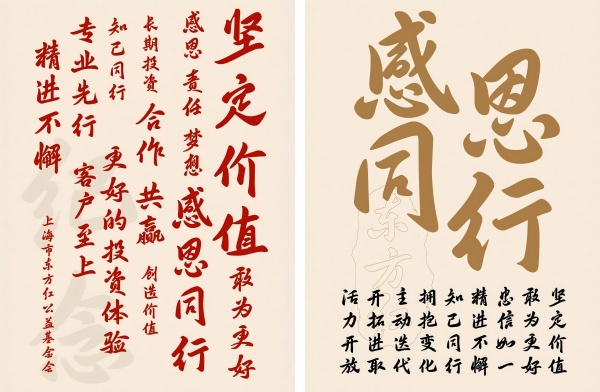 坚定价值
敢为更好
感恩 责任 梦想
感恩同行
长期投资
合作 共赢
创造价值
知己同行
更好的投资体验
专业先行
客户至上
精进不懈
上海市东方红公益基金会
纪念
感恩
同行
东方红
坚定价值
敢为更好
忠信如一
精进不懈
知己同行
拥抱变化
主动迭代
开拓进取
活力开放